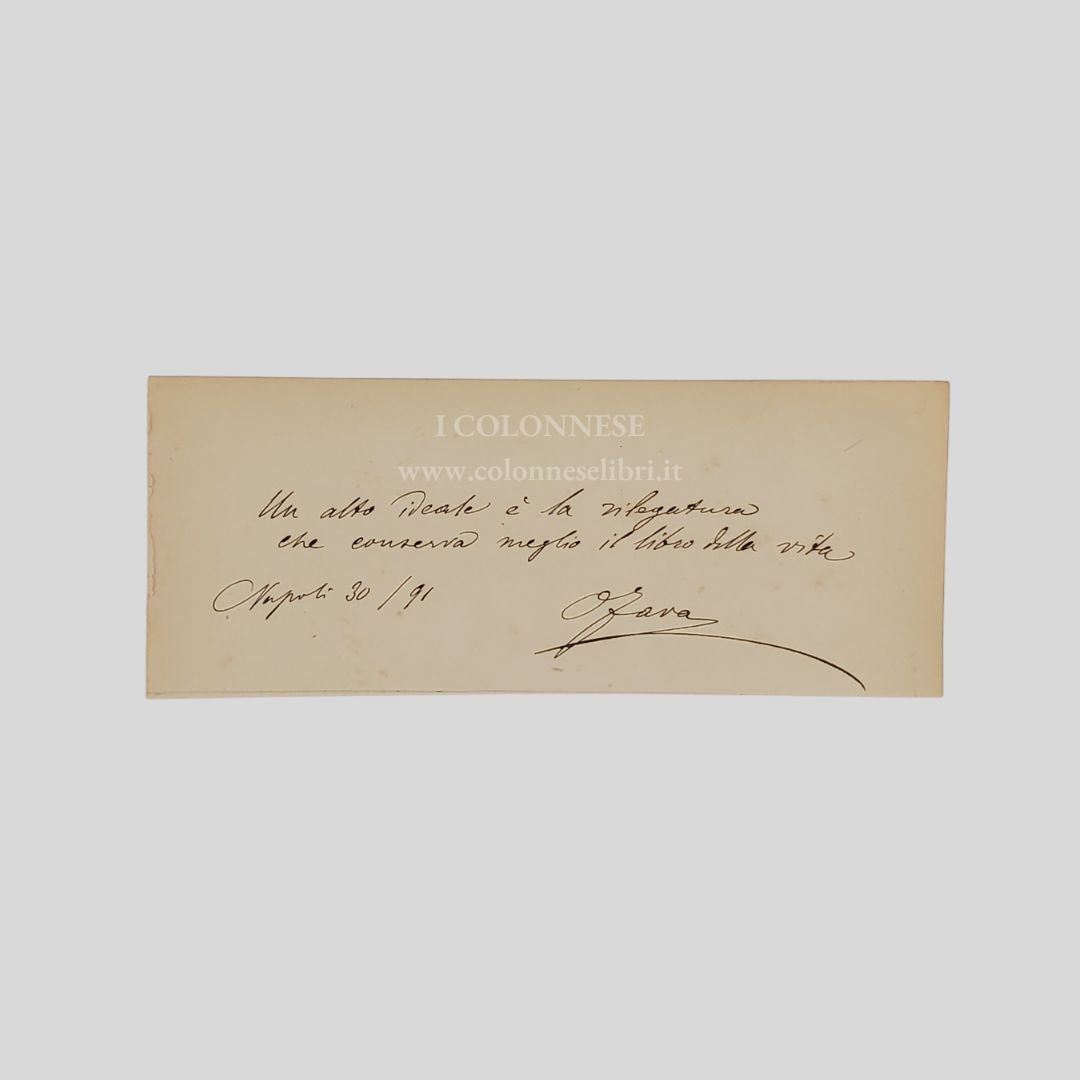 I COLONNESE
www.colonneselibri.it
Un alto ideale è la rilegatura
che conserva meglio il libro della vita
Napoli 30 / 91
OFava